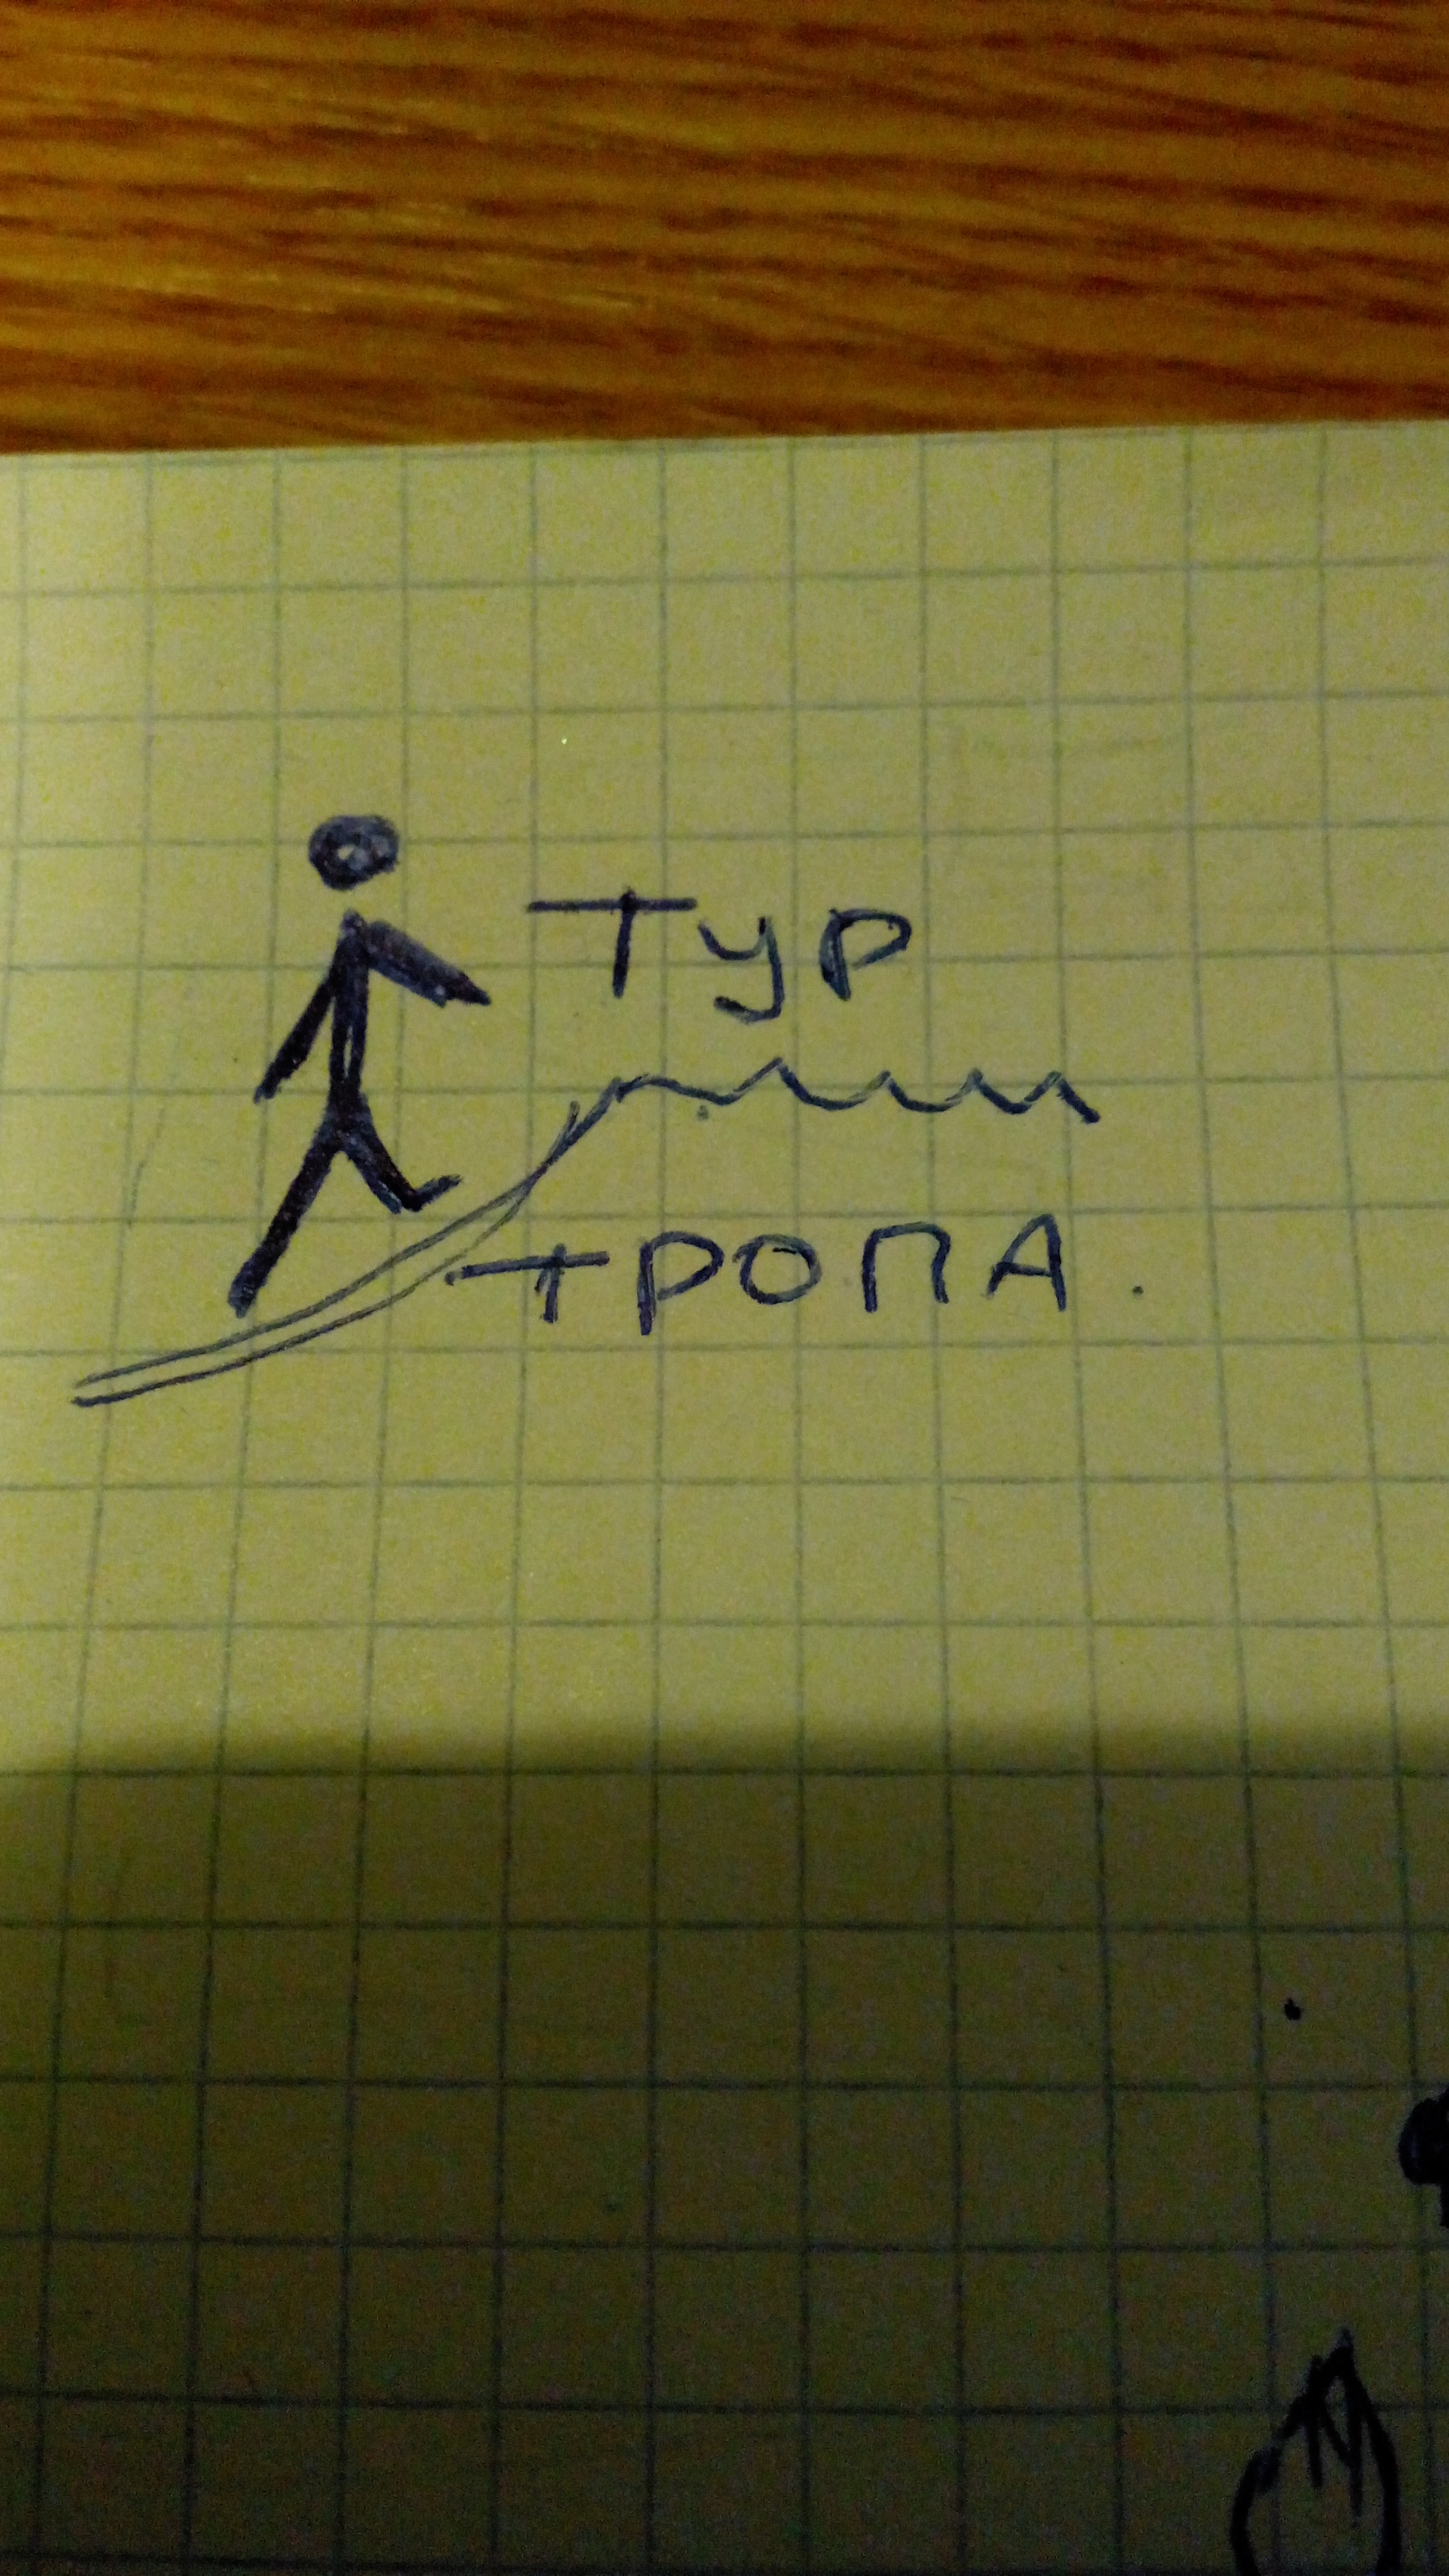 Тур
тропа.